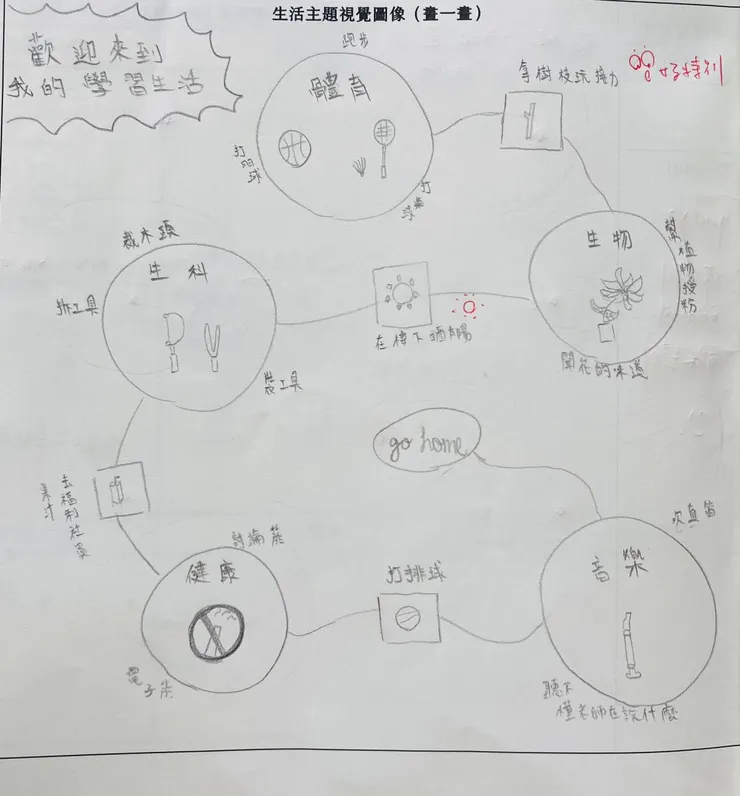 生活主題視覺圖像（畫一畫）
歡迎來到
我的學習生活
跑步
體育
打羽球
拿樹枝玩接力
好特別
生物
幫植物授粉
開花的味道
在樓下曬太陽
生科
裁木頭
拆工具
裝工具
去福利社買
果汁
健康
討論菸
電子菸
打排球
音樂
吹直笛
聽不
懂老師在說什麼
go home